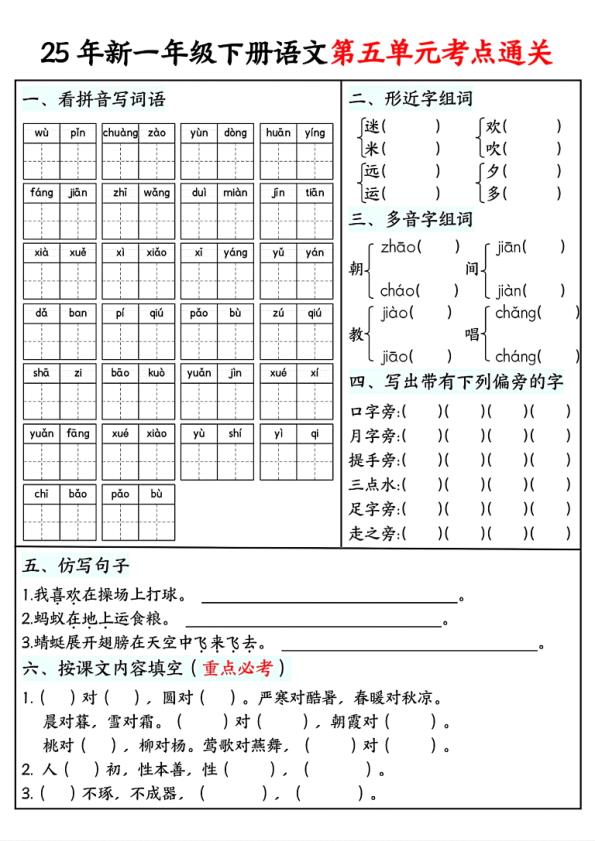 25年新一年级下册语文第五单元考点通关
一、看拼音写词语
wù pǐn chuàng zào yùn dòng huān yíng
fáng jiān zhī wǎng duì miàn jīn tiān
xià xuě xì xiǎo xī yáng yǔ yán
dǎ ban pí qiú pǎo bù zú qiú
shā zi bāo kuò yuǎn jìn xué xí
yuǎn fāng xué xiào yù shí yì qi
chī bǎo pǎo bù
二、形近字组词
迷( ) 欢( )
米( ) 吹( )
远( ) 夕( )
运( ) 多( )
三、多音字组词
zhāo( ) jiān( )
朝 间
cháo( ) jiàn( )
jiào( ) chǎng( )
教 唱
jiāo( ) cháng( )
四、写出带有下列偏旁的字
口字旁:( )( )( )( )( )
月字旁:( )( )( )( )( )
提手旁:( )( )( )( )( )
三点水:( )( )( )( )( )
足字旁:( )( )( )( )( )
走之旁:( )( )( )( )( )
五、仿写句子
1.我喜欢在操场上打球。 ____________________。
2.蚂蚁在地上运食粮。 ____________________。
3.蜻蜓展开翅膀在天空中飞来飞去。 ____________________。
六、按课文内容填空（重点必考）
1.（ ）对（ ），圆对（ ）。严寒对酷暑，春暖对秋凉。
晨对暮，雪对霜。（ ）对（ ），朝霞对（ ）。
桃对（ ），柳对杨。莺歌对燕舞，（ ）对（ ）。
2. 人（ ）初，性本善，性（ ），（ ）。
3.（ ）不琢，不成器，（ ），（ ）。